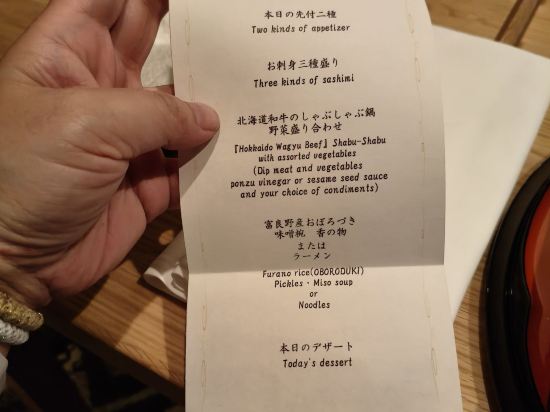 本日の先付二種
Two kinds of appetizer
お刺身三種盛り
Three kinds of sashimi
北海道和牛のしゃぶしゃぶ鍋
野菜盛り合わせ
『Hokkaido Wagyu Beef』 Shabu-Shabu
with assorted vegetables
(Dip meat and vegetables
ponzu vinegar or sesame seed sauce
and your choice of condiments)
富良野産おぼろづき
味噌椀 香の物
または
ラーメン
Furano rice(OBORODUKI)
Pickles・Miso soup
or
Noodles
本日のデザート
Today's dessert